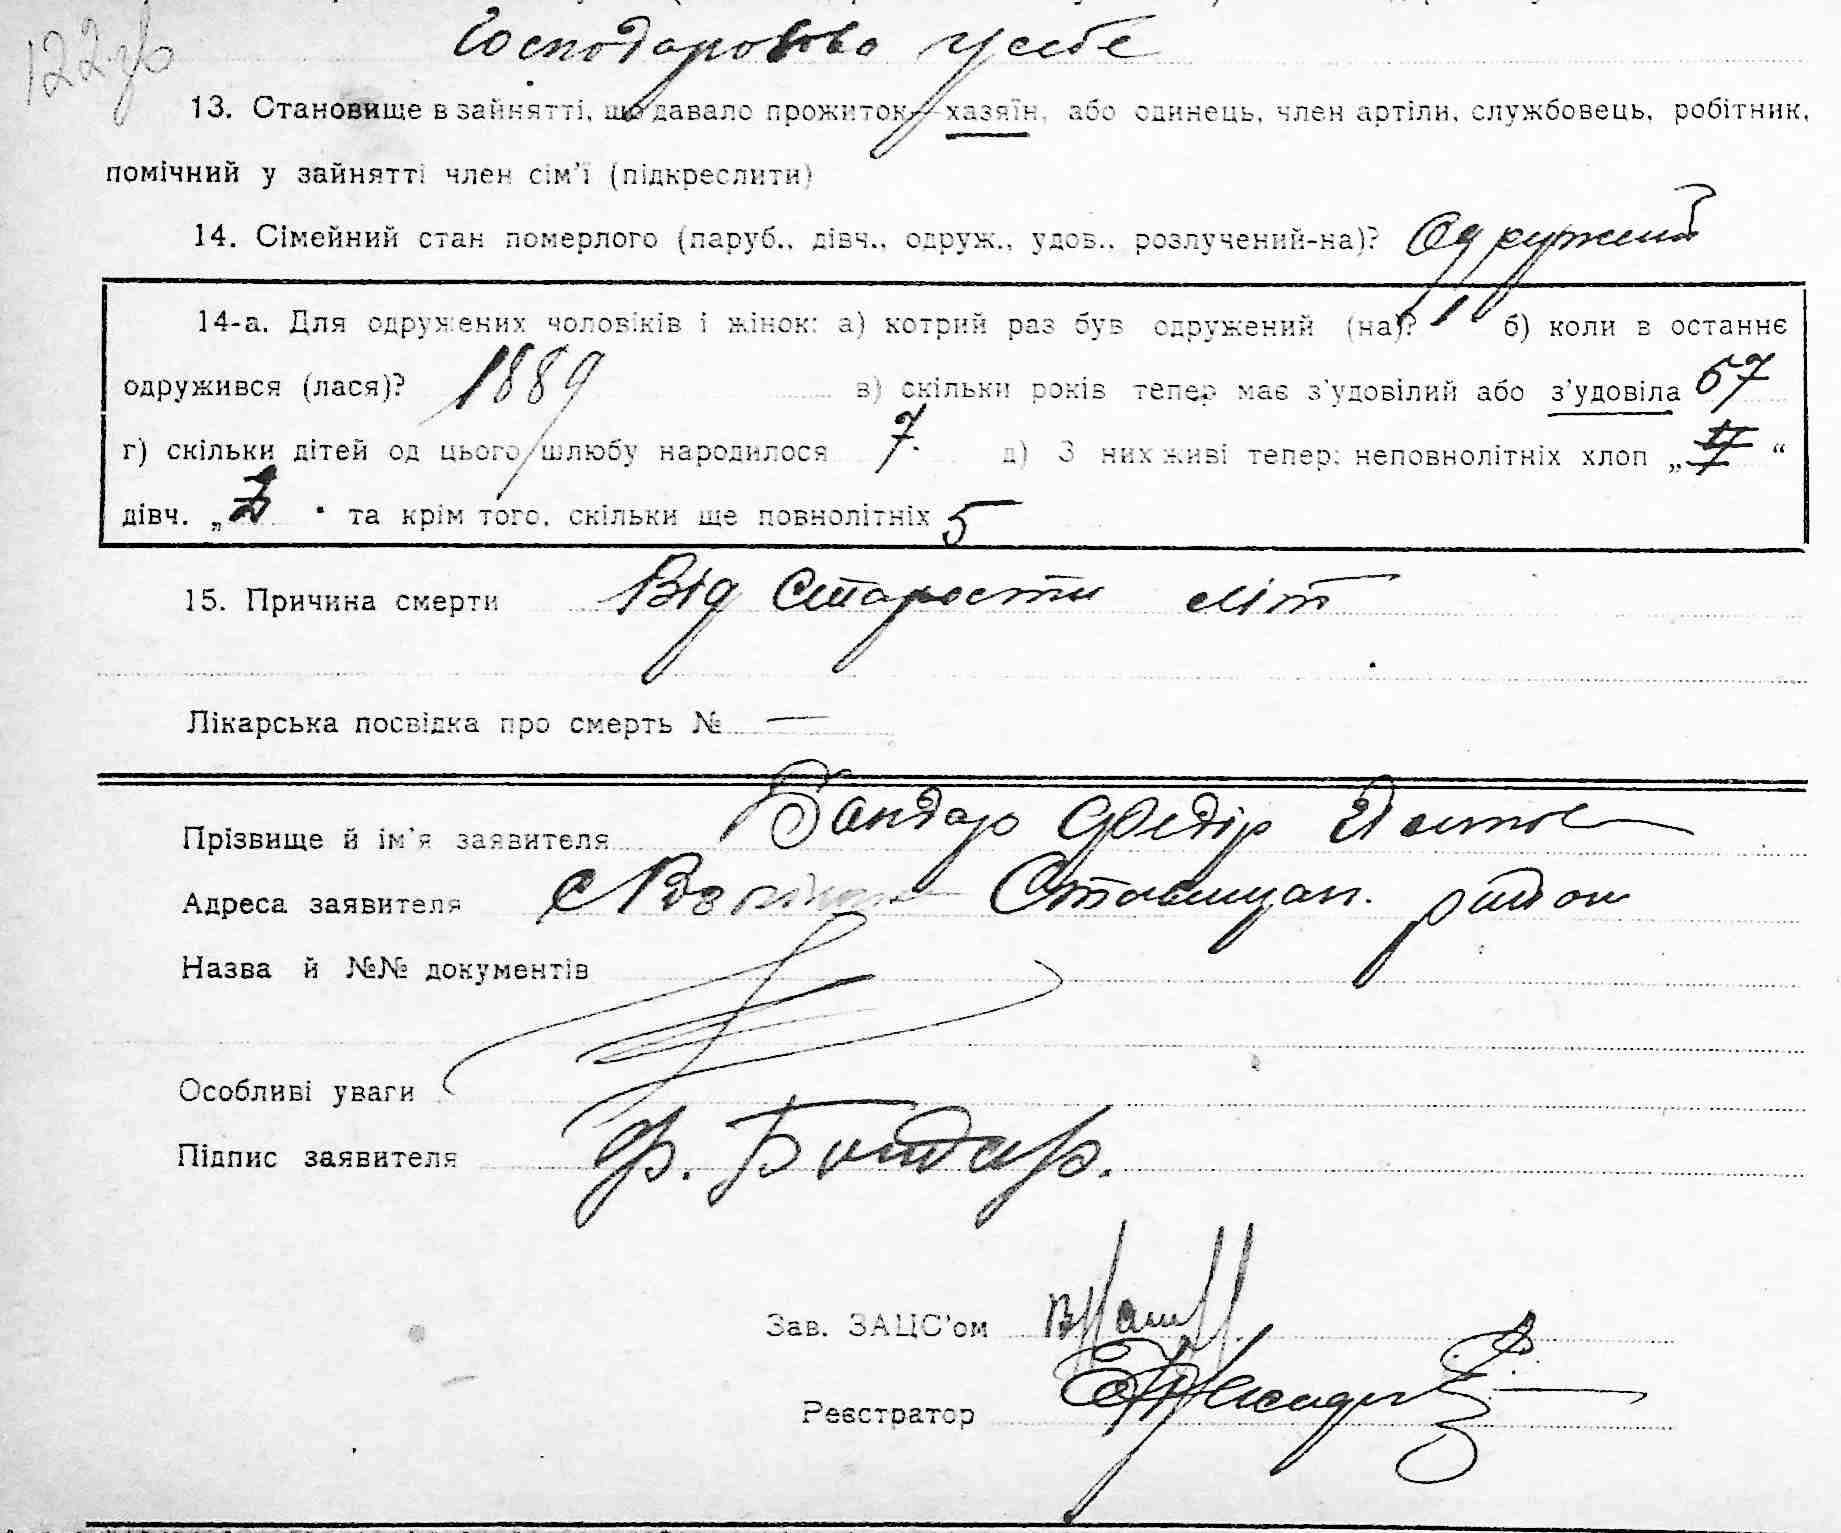 122 зв
Господарював у себе
13. Становище в зайнятті, що давало прожиток—хазяїн, або одинець, член артіли, службовець, робітник,
помічний у зайнятті член сім’ї (підкреслити)
14. Сімейний стан померлого (паруб., дівч., одруж., удов., розлучений-на)? Одружений
14-а. Для одружених чоловіків і жінок: а) котрий раз був одружений (на)? 1 б) коли в останнє
одружився (лася)? 1889 в) скільки років тепер має з’удовілий або з’удовіла 57
г) скільки дітей од цього шлюбу народилося 7. д) З них живі тепер: неповнолітніх хлоп „ “
дівч. „ “ та крім того, скільки ще повнолітніх 5
15. Причина смерти Від Старости літ
Лікарська посвідка про смерть № —
Прізвище й ім’я заявителя Бондар Федір
Адреса заявителя с район
Назва й №№ документів
Особливі уваги
Підпис заявителя Ф. Бондар.
Зав. ЗАЦС’ом
Реєстратор